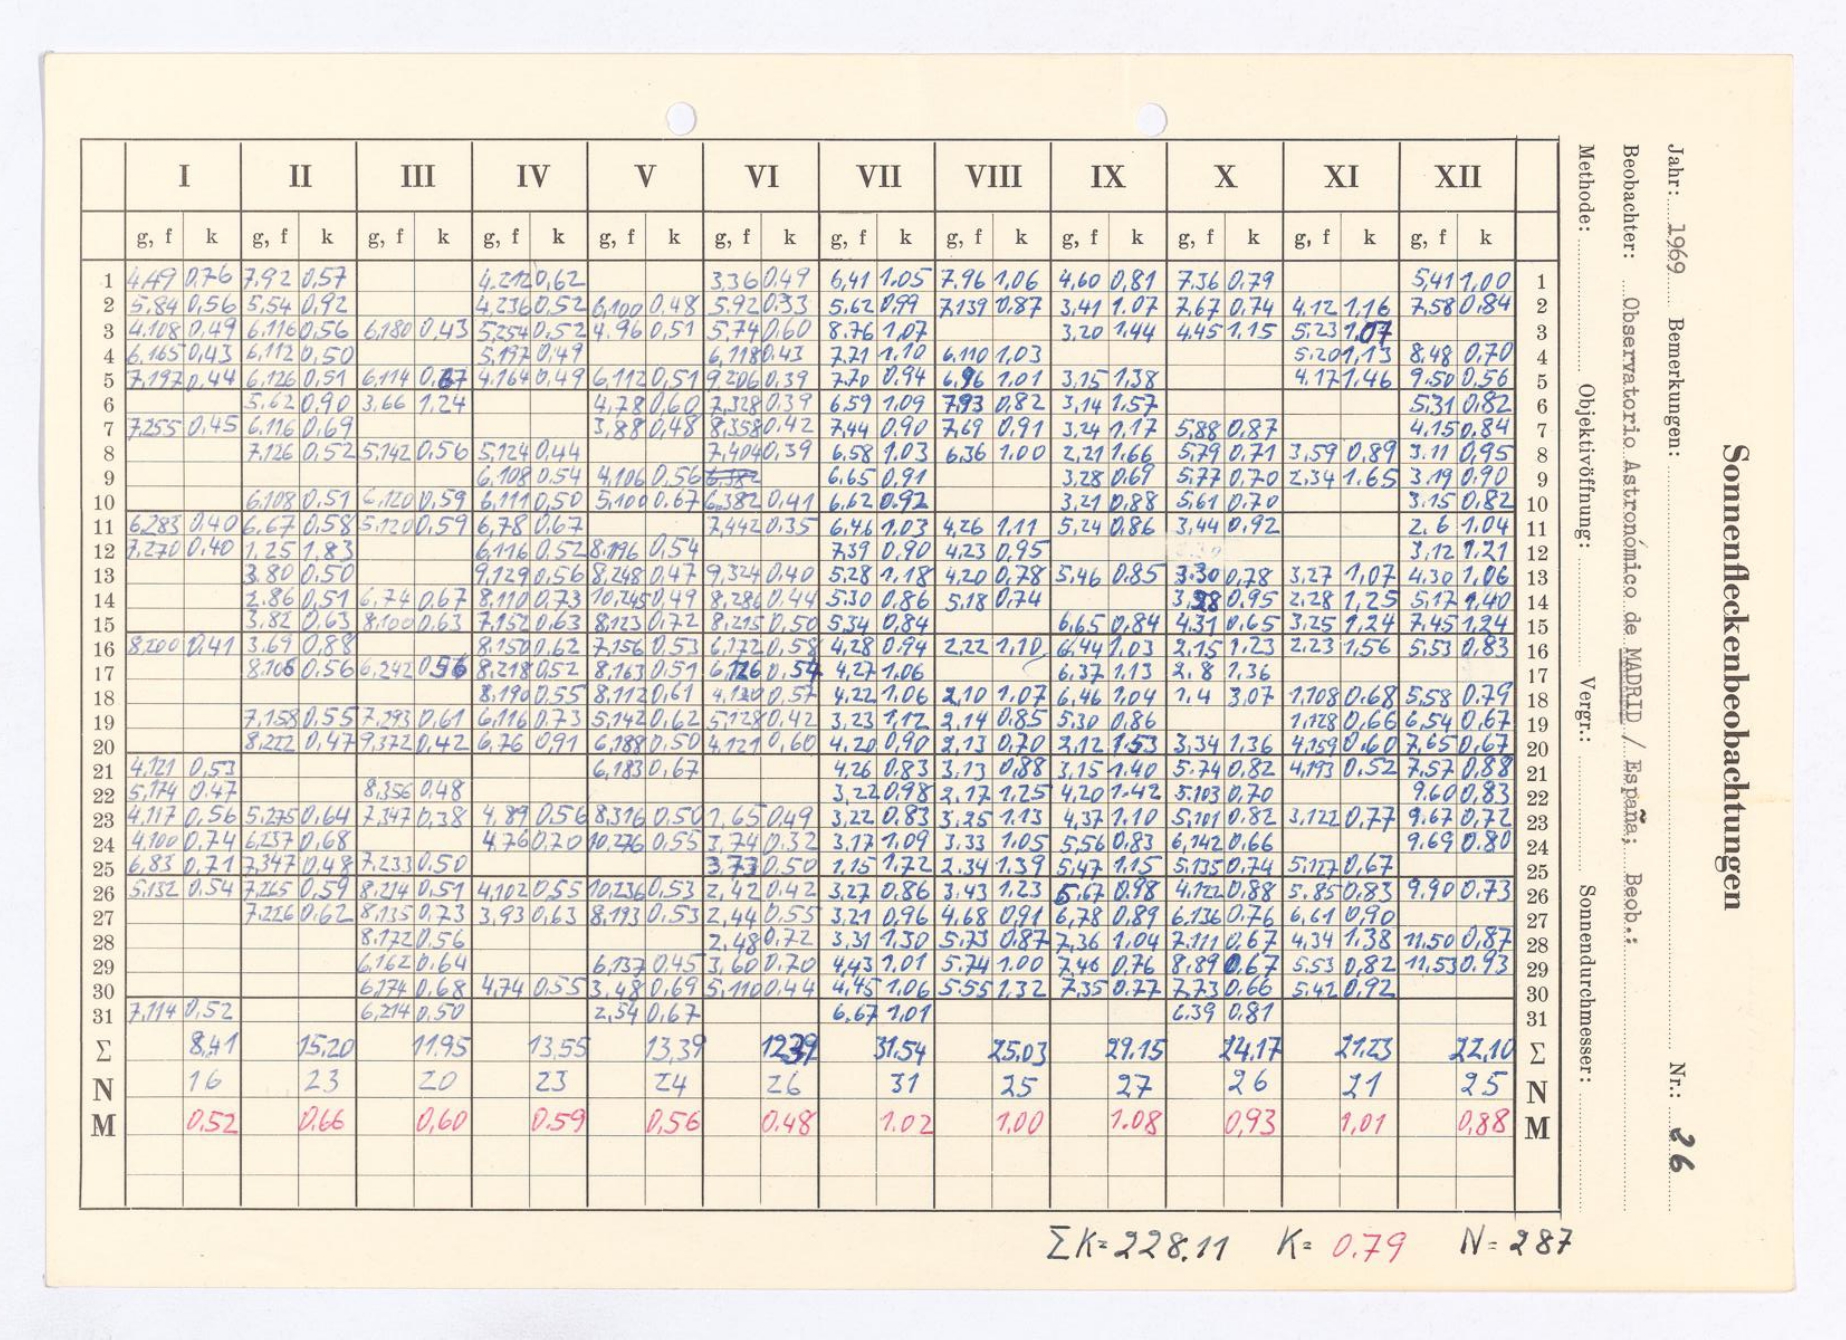 Sonnenfleckenbeobachtungen
Jahr: 1969 Bemerkungen: Nr.: 26
Beobachter: Observatorio Astronómico de MADRID / España; Beob.:
Methode: Objektivöffnung: Vergr.: Sonnendurchmesser:
I II III IV V VI VII VIII IX X XI XII
g, f k g, f k g, f k g, f k g, f k g, f k g, f k g, f k g, f k g, f k g, f k g, f k
1 4,49 0,76 7,92 0,57 4,212 0,62 3,36 0,49 6,41 1.05 7,96 1,06 4,60 0,81 7,36 0,79 5,41 1,00 1
2 5,84 0,56 5,54 0,92 4,236 0,52 6,100 0,48 5,92 0,33 5.62 0,99 7,139 0,87 3,41 1.07 7,67 0,74 4,12 1,16 7,58 0,84 2
3 4,108 0,49 6,116 0,56 6,180 0,43 5,254 0,52 4,96 0,51 5,74 0,60 8.76 1,07 3,20 1,44 4,45 1,15 5,23 1,07 3
4 6,165 0,43 6,112 0,50 5,197 0,49 6,118 0,43 7,71 1,10 6,110 1,03 5,20 1,13 8,48 0,70 4
5 7,197 0,44 6,126 0,51 6,114 0,67 4,164 0,49 6,112 0,51 9,206 0,39 7,70 0,94 6,96 1.01 3,15 1,38 4,17 1,46 9,50 0,56 5
6 5,62 0,90 3,66 1,24 4,78 0,60 7,328 0,39 6,59 1,09 7,93 0,82 3,14 1,57 5,31 0,82 6
7 7,255 0,45 6,116 0,69 3,88 0,48 8,358 0,42 7,44 0,90 7,69 0,91 3,24 1,17 5,88 0,87 4,15 0,84 7
8 7,126 0,52 5,142 0,56 5,124 0,44 7,404 0,39 6,58 1.03 6,36 1.00 2,21 1,66 5,79 0,71 3,59 0,89 3.11 0,95 8
9 6,108 0,54 4,106 0,56 6,382 6,65 0,91 3,28 0,69 5,77 0,70 2,34 1,65 3,19 0,90 9
10 6,108 0,51 6,120 0,59 6,111 0,50 5,100 0,67 6,382 0,41 6,62 0,92 3,21 0,88 5,61 0,70 3,15 0,82 10
11 6,283 0,40 6,67 0,58 5,120 0,59 6,78 0,67 7,442 0,35 6,46 1,03 4,26 1,11 5,24 0,86 3,44 0,92 2.6 1,04 11
12 7,270 0,40 1,25 1,83 6,116 0,52 8,196 0,54 7,39 0,90 4,23 0,95 3,12 1,21 12
13 3,80 0,50 9,129 0,56 8,248 0,47 9,324 0,40 5,28 1,18 4,20 0,78 5,46 0,85 3.30 0,78 3,27 1,07 4,30 1,06 13
14 2,86 0,51 6,74 0,67 8,110 0,73 10,245 0,49 8,286 0,44 5,30 0,86 5,18 0,74 3,28 0,95 2,28 1,25 5,17 1,40 14
15 3,82 0,63 8,100 0,63 7,152 0,63 8,123 0,72 8,215 0,50 5,34 0,84 6,65 0,84 4,31 0,65 3,25 1,24 7,45 1,24 15
16 8,200 0,41 3,69 0,88 8,150 0,62 7,156 0,53 6,172 0,58 4,28 0,94 2,22 1,10 6,44 1,03 2,15 1,23 2,23 1,56 5,53 0,83 16
17 8,106 0,56 6,242 0,56 8,218 0,52 8,163 0,51 6,126 0,54 4,27 1,06 6,37 1,13 2,8 1,36 17
18 8,190 0,55 8,112 0,61 4,120 0,57 4,22 1,06 2,10 1,07 6,46 1,04 1.4 3,07 1,108 0,68 5,58 0,79 18
19 7,158 0,55 7,293 0,61 6,116 0,73 5,142 0,62 5,128 0,42 3,23 1,12 2,14 0,85 5,30 0,86 1,128 0,66 6,54 0,67 19
20 8,222 0,47 9,372 0,42 6,76 0,91 6,188 0,50 4,121 0,60 4,20 0,90 2,13 0,70 2,12 1,53 3,34 1,36 4,159 0,60 7,65 0,67 20
21 4,121 0,53 6,183 0,67 4,26 0,83 3,13 0,88 3,15 1,40 5,74 0,82 4,193 0,52 7,57 0,88 21
22 5,174 0,47 8,356 0,48 3,22 0,98 2,17 1,25 4,20 1,42 5,103 0,70 9,60 0,83 22
23 4,117 0,56 5,275 0,64 7,347 0,38 4,89 0,56 8,316 0,50 1,65 0,49 3,22 0,83 3,25 1,13 4,37 1,10 5,101 0,82 3,122 0,77 9,67 0,72 23
24 4,100 0,74 6,237 0,68 4,76 0,70 10,276 0,55 3,74 0,32 3,17 1,09 3.33 1,05 5,56 0,83 6,142 0,66 9,69 0.80 24
25 6,83 0,71 7,347 0,48 7,233 0,50 3,73 0,50 1,15 1,72 2,34 1,39 5,47 1,15 5,135 0,74 5,127 0,67 25
26 5,132 0,54 7,265 0,59 8,214 0,51 4,102 0,55 10,236 0,53 2,42 0,42 3,27 0,86 3,43 1,23 5,67 0,98 4,122 0,88 5,85 0,83 9,90 0,73 26
27 7,226 0,62 8,135 0,73 3,93 0,63 8,193 0,53 2,44 0,55 3,21 0,96 4,68 0,91 6,78 0,89 6,136 0,76 6,61 0,90 27
28 8,172 0,56 2,48 0,72 3,31 1,30 5,73 0,87 7,36 1,04 7,111 0,67 4,34 1,38 11,50 0,87 28
29 6,162 0,64 6,137 0,45 3,60 0,70 4,43 1,01 5,74 1.00 7,46 0,76 8,89 0,67 5,53 0,82 11,53 0.93 29
30 6,174 0,68 4,74 0,55 3,48 0,69 5,110 0,44 4,45 1,06 5,55 1,32 7,35 0,77 7,73 0,66 5,42 0,92 30
31 7,114 0,52 6,214 0,50 2,54 0,67 6,67 1,01 6,39 0,81 31
Σ 8,41 15,20 11,95 13,55 13,39 12,39 31,54 25,03 29,15 24,17 21,23 22,10 Σ
N 16 23 20 23 24 26 31 25 27 26 21 25 N
M 0,52 0,66 0,60 0.59 0,56 0.48 1.02 1,00 1.08 0,93 1,01 0,88 M
ΣK= 228.11 K= 0.79 N= 287